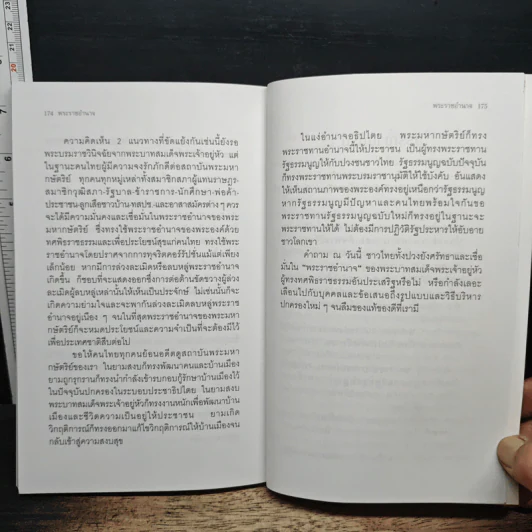 174 พระราชอำนาจ
ความคิดเห็น 2 แนวทางที่ขัดแย้งกันเช่นนี้ยังรอ
พระบรมราชวินิจฉัยจากพระบาทสมเด็จพระเจ้าอยู่หัว แต่
ในฐานะคนไทยผู้มีความจงรักภักดีต่อสถาบันพระมหา
กษัตริย์ ทุกคนทุกหมู่เหล่าทั้งสมาชิกสภาผู้แทนราษฎร-
สมาชิกวุฒิสภา-รัฐบาล-ข้าราชการ-นักศึกษา-พ่อค้า-
ประชาชน-ลูกเสือชาวบ้าน-ทสปช.-และอาสาสมัครต่าง ๆ ควร
จะได้มีความมั่นคงและเชื่อมั่นในพระราชอำนาจของพระมหา
กษัตริย์ ซึ่งทรงใช้พระราชอำนาจของพระองค์ด้วย
ทศพิธราชธรรมและเพื่อประโยชน์สุขแก่คนไทย ทรงใช้พระ
ราชอำนาจโดยปราศจากการทุจริตคอร์รัปชั่นแม้แต่เพียง
เล็กน้อย หากมีการล่วงละเมิดหรือลบหลู่พระราชอำนาจ
เกิดขึ้น ก็ชอบที่จะแสดงออกซึ่งการต่อต้านขัดขวางผู้ล่วง
ละเมิดผู้ลบหลู่เหล่านั้นให้เห็นเป็นประจักษ์ ไม่เช่นนั้นก็จะ
เกิดความย่ามใจและจะพากันล่วงละเมิดลบหลู่พระราช
อำนาจอยู่เนือง ๆ จนในที่สุดพระราชอำนาจของพระมหา
กษัตริย์ก็จะหมดประโยชน์และความจำเป็นที่จะต้องมีไว้
เพื่อประเทศชาติสืบต่อไป
ขอให้คนไทยทุกคนย้อนอดีตดูสถาบันพระมหา
กษัตริย์ของเรา ในยามสงบก็ทรงพัฒนาคนและบ้านเมือง
ยามถูกรุกรานก็ทรงนำกำลังเข้ารบกอบกู้รักษาบ้านเมืองไว้
ในปัจจุบันปกครองในระบอบประชาธิปไตย ในยามสงบ
พระบาทสมเด็จพระเจ้าอยู่หัวก็ทรงงานหนักเพื่อพัฒนาบ้าน
เมืองและชีวิตความเป็นอยู่ให้ประชาชน ยามเกิด
วิกฤติการณ์ก็ทรงออกมาแก้ไขวิกฤติการณ์ให้บ้านเมืองจน
กลับเข้าสู่ความสงบสุข
พระราชอำนาจ 175
ในแง่อำนาจอธิปไตย พระมหากษัตริย์ก็ทรง
พระราชทานอำนาจนี้ให้ประชาชน เป็นผู้ทรงพระราชทาน
รัฐธรรมนูญให้กับปวงชนชาวไทย รัฐธรรมนูญฉบับปัจจุบัน
ก็ทรงพระราชทานพระบรมราชานุมัติให้ใช้บังคับ อันแสดง
ให้เห็นสถานภาพของพระองค์ทรงอยู่เหนือกว่ารัฐธรรมนูญ
หากรัฐธรรมนูญมีปัญหาและคนไทยพร้อมใจกันขอ
พระราชทานรัฐธรรมนูญฉบับใหม่ก็ทรงอยู่ในฐานะจะ
พระราชทานให้ได้ ไม่ต้องมีการปฏิวัติรัฐประหารให้อับอาย
ชาวโลกเขา
คำถาม ณ วันนี้ ชาวไทยทั้งปวงยังศรัทธาและเชื่อ
มั่นใน "พระราชอำนาจ" ของพระบาทสมเด็จพระเจ้าอยู่หัว
ผู้ทรงทศพิธราชธรรมอันประเสริฐหรือไม่ หรือกำลังเลอะ
เลือนไปกับบุคคลและข้อเสนอถึงรูปแบบและวิธีบริหาร
ปกครองใหม่ ๆ จนลืมของแท้ของดีที่เรามี